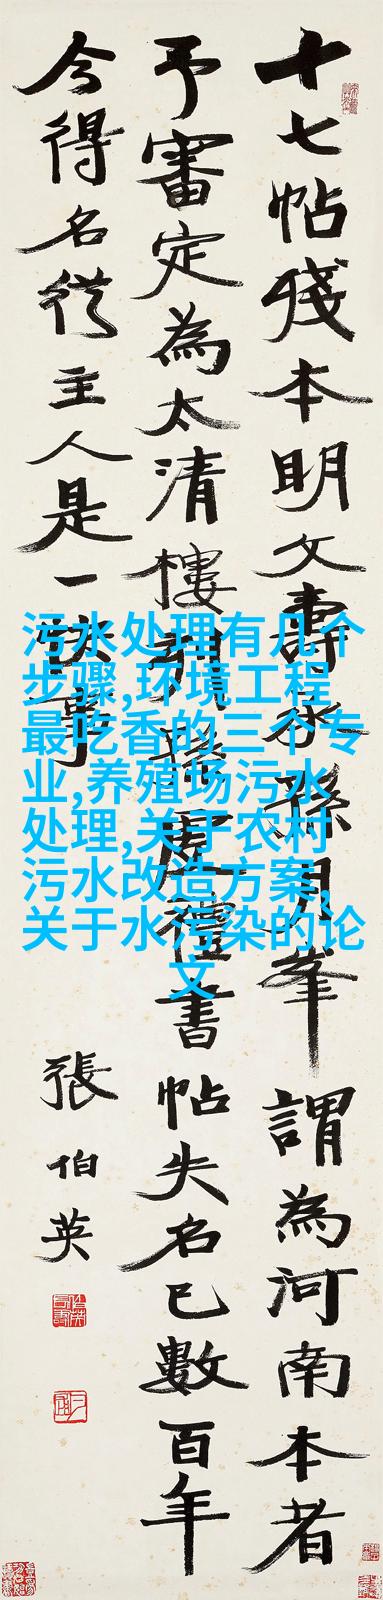 十七帖殘本明文壽承孫月峯謂為河南本者
予審定為太清樓孫虔禮書帖失名已數百年
今得名從主人是一快事
張伯英
污水处理有几个
步骤,环境工程
最吃香的三个专
业,养殖场污水
处理,关于农村
污水改造方案,
关于水污染的论
文